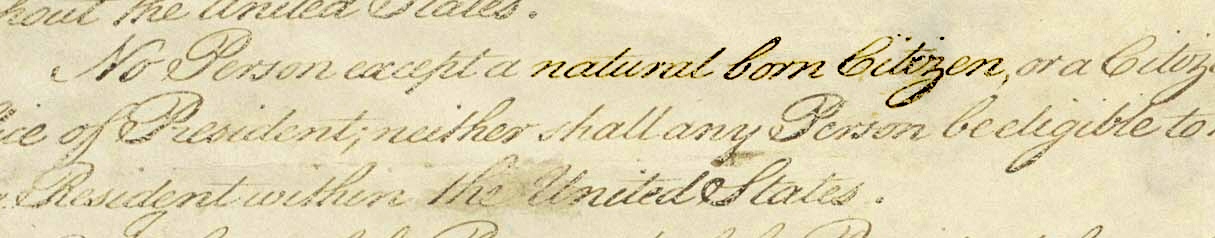 hout the United States.
No Person except a natural born Citizen, or a Citize
ice of President; neither shall any Person be eligible to
Resident within the United States.